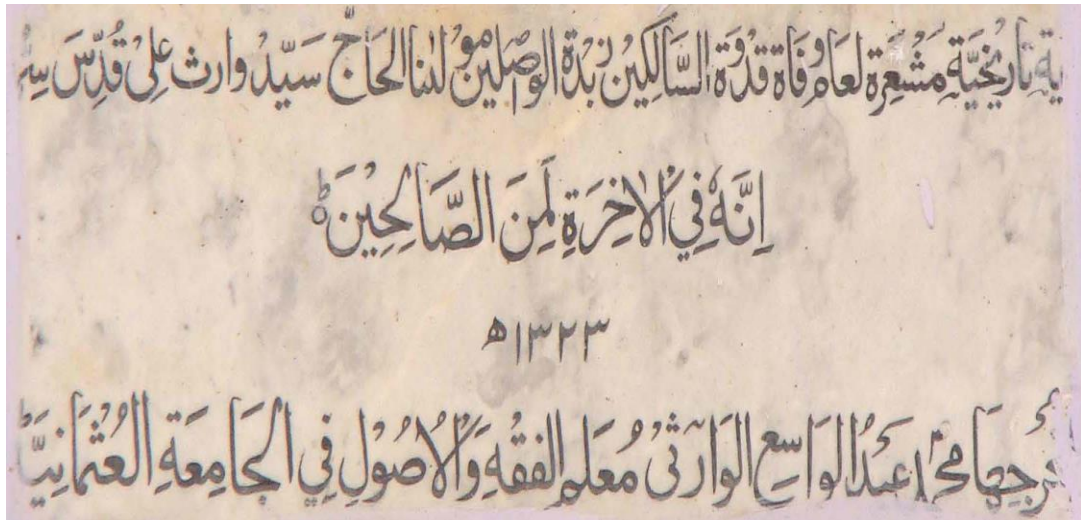 ية تاريخيّة مشعرة لعام وفاة قدوة السّالكين زبدة الوصلين مولٰنا الحاجّ سيّد وارث علي قُدِّسَ سِرُّ
اِنَّهٗ فِي الْاٰخِرَةِ لَمِنَ الصَّالِحِيْنَ ط
۱۳۲۳ھ
محمد عبدالواسع الوارثی معلم الفقه والاصول في الجامعة العثمانيّة